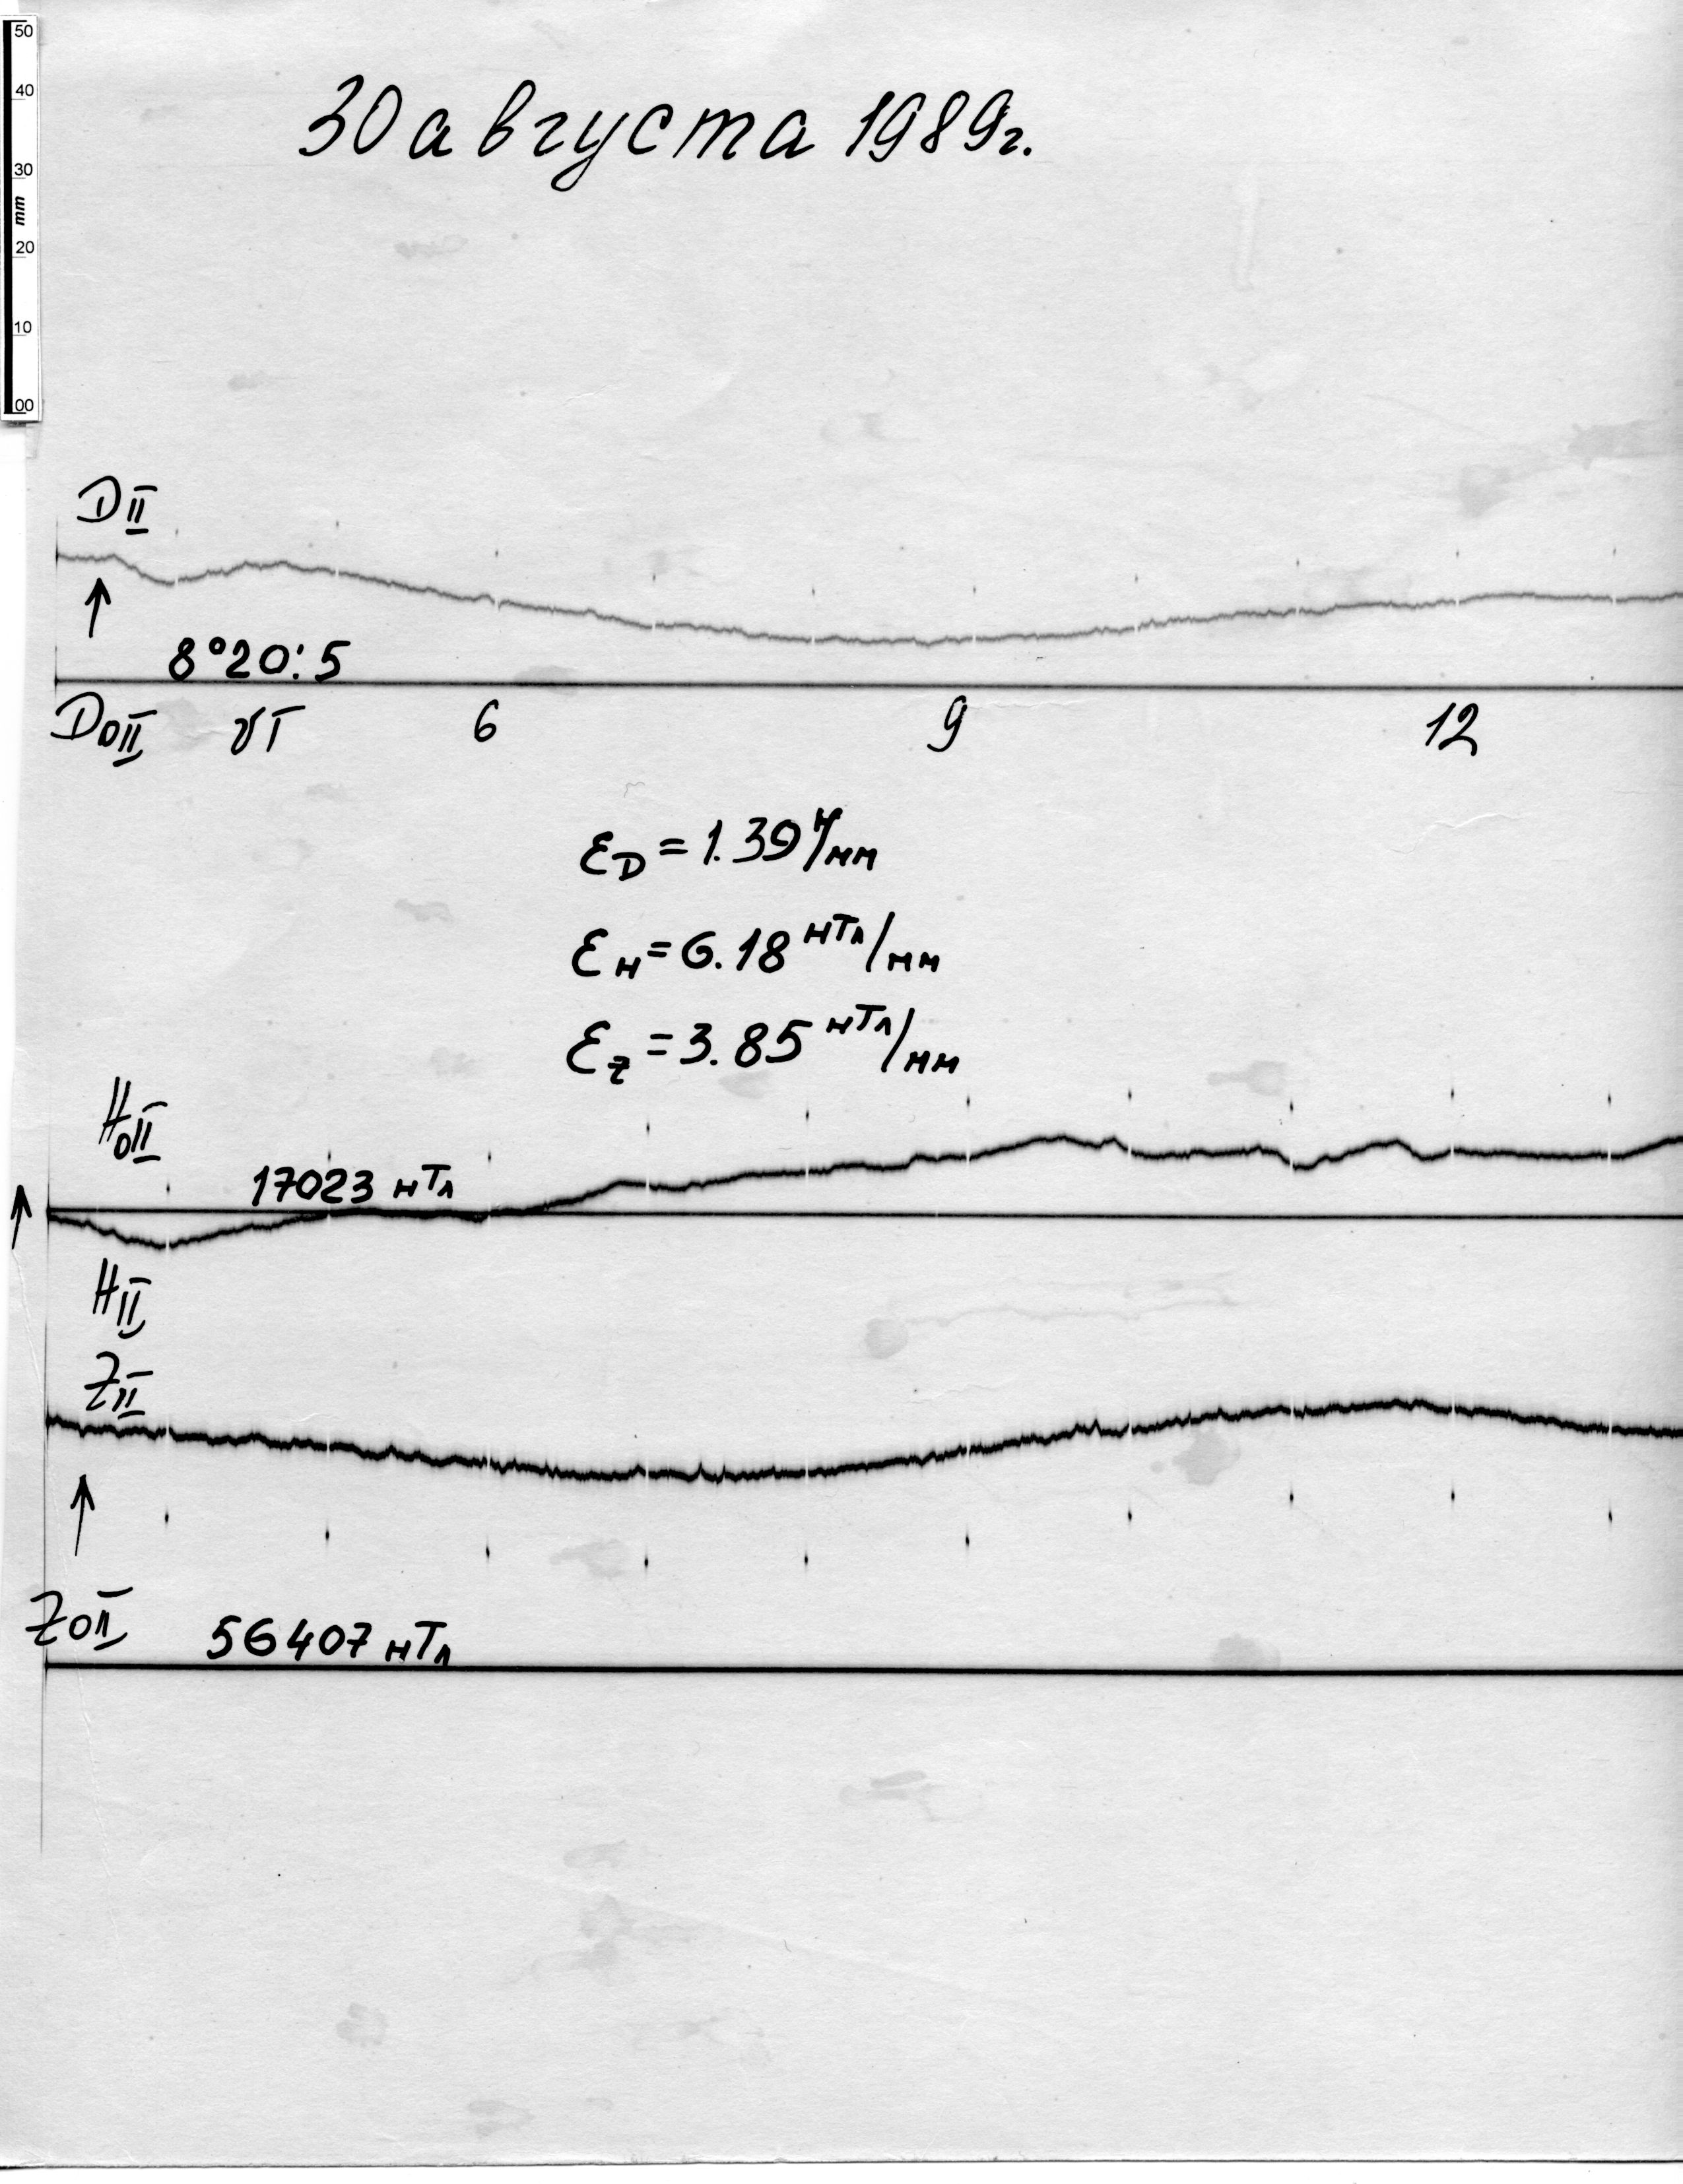 50
40
30
mm
20
10
00
30 августа 1989г.
DII
8°20:5
D0II UT 6 9 12
εD = 1.39'/мм
εH = 6.18 нТл/мм
εz = 3.85 нТл/мм
H0II
17023 нТл
HII
ZII
Z0II 56407 нТл